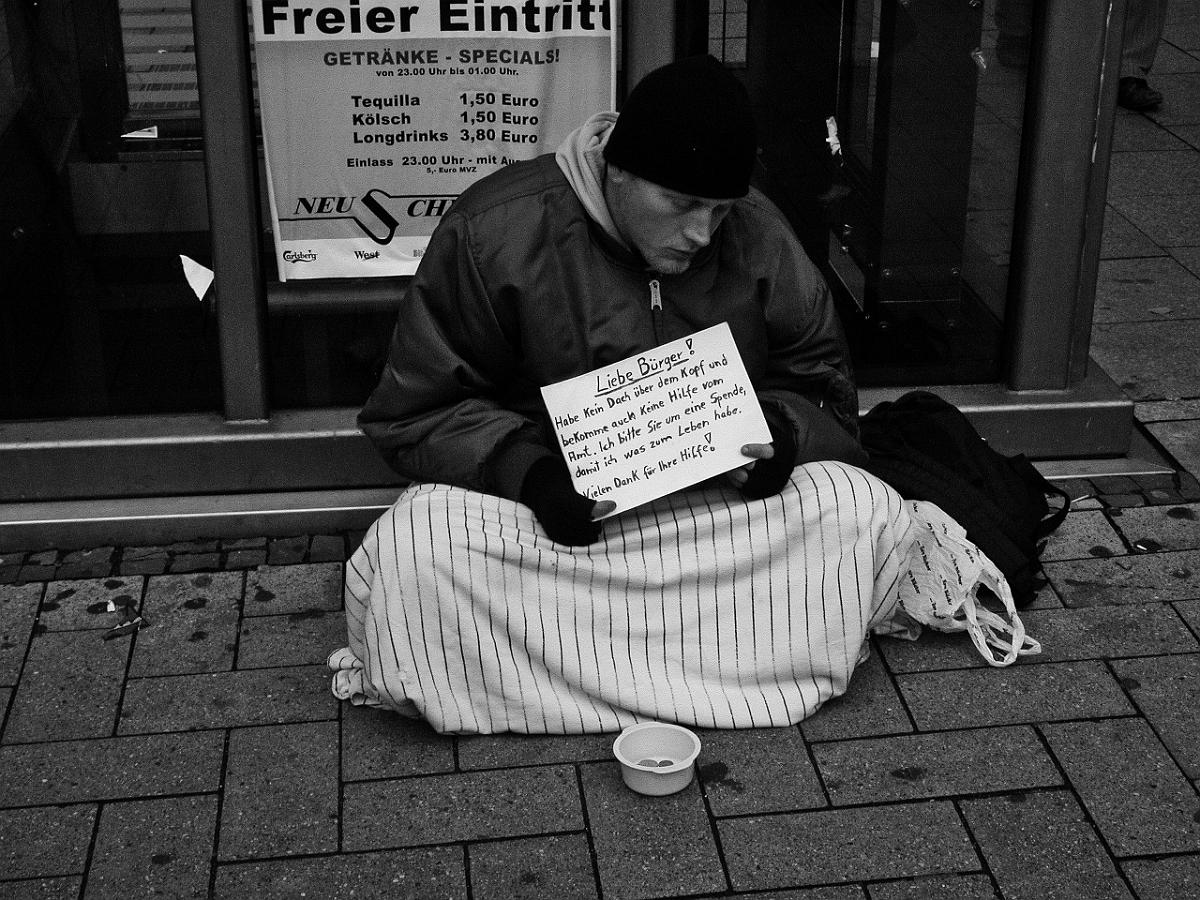 Freier Eintritt
GETRÄNKE - SPECIALS!
von 23.00 Uhr bis 01.00 Uhr.
Tequilla 1,50 Euro
Kölsch 1,50 Euro
Longdrinks 3,80 Euro
Einlass 23.00 Uhr - mit
5,- Euro MVZ
NEU
Carlsberg West
Liebe Bürger!
Habe kein Dach über dem Kopf und
bekomme auch keine Hilfe vom
Amt. Ich bitte Sie um eine Spende,
damit ich was zum Leben habe.
Vielen Dank für Ihre Hilfe!